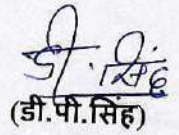 डी. सिंह
(डी.पी.सिंह)